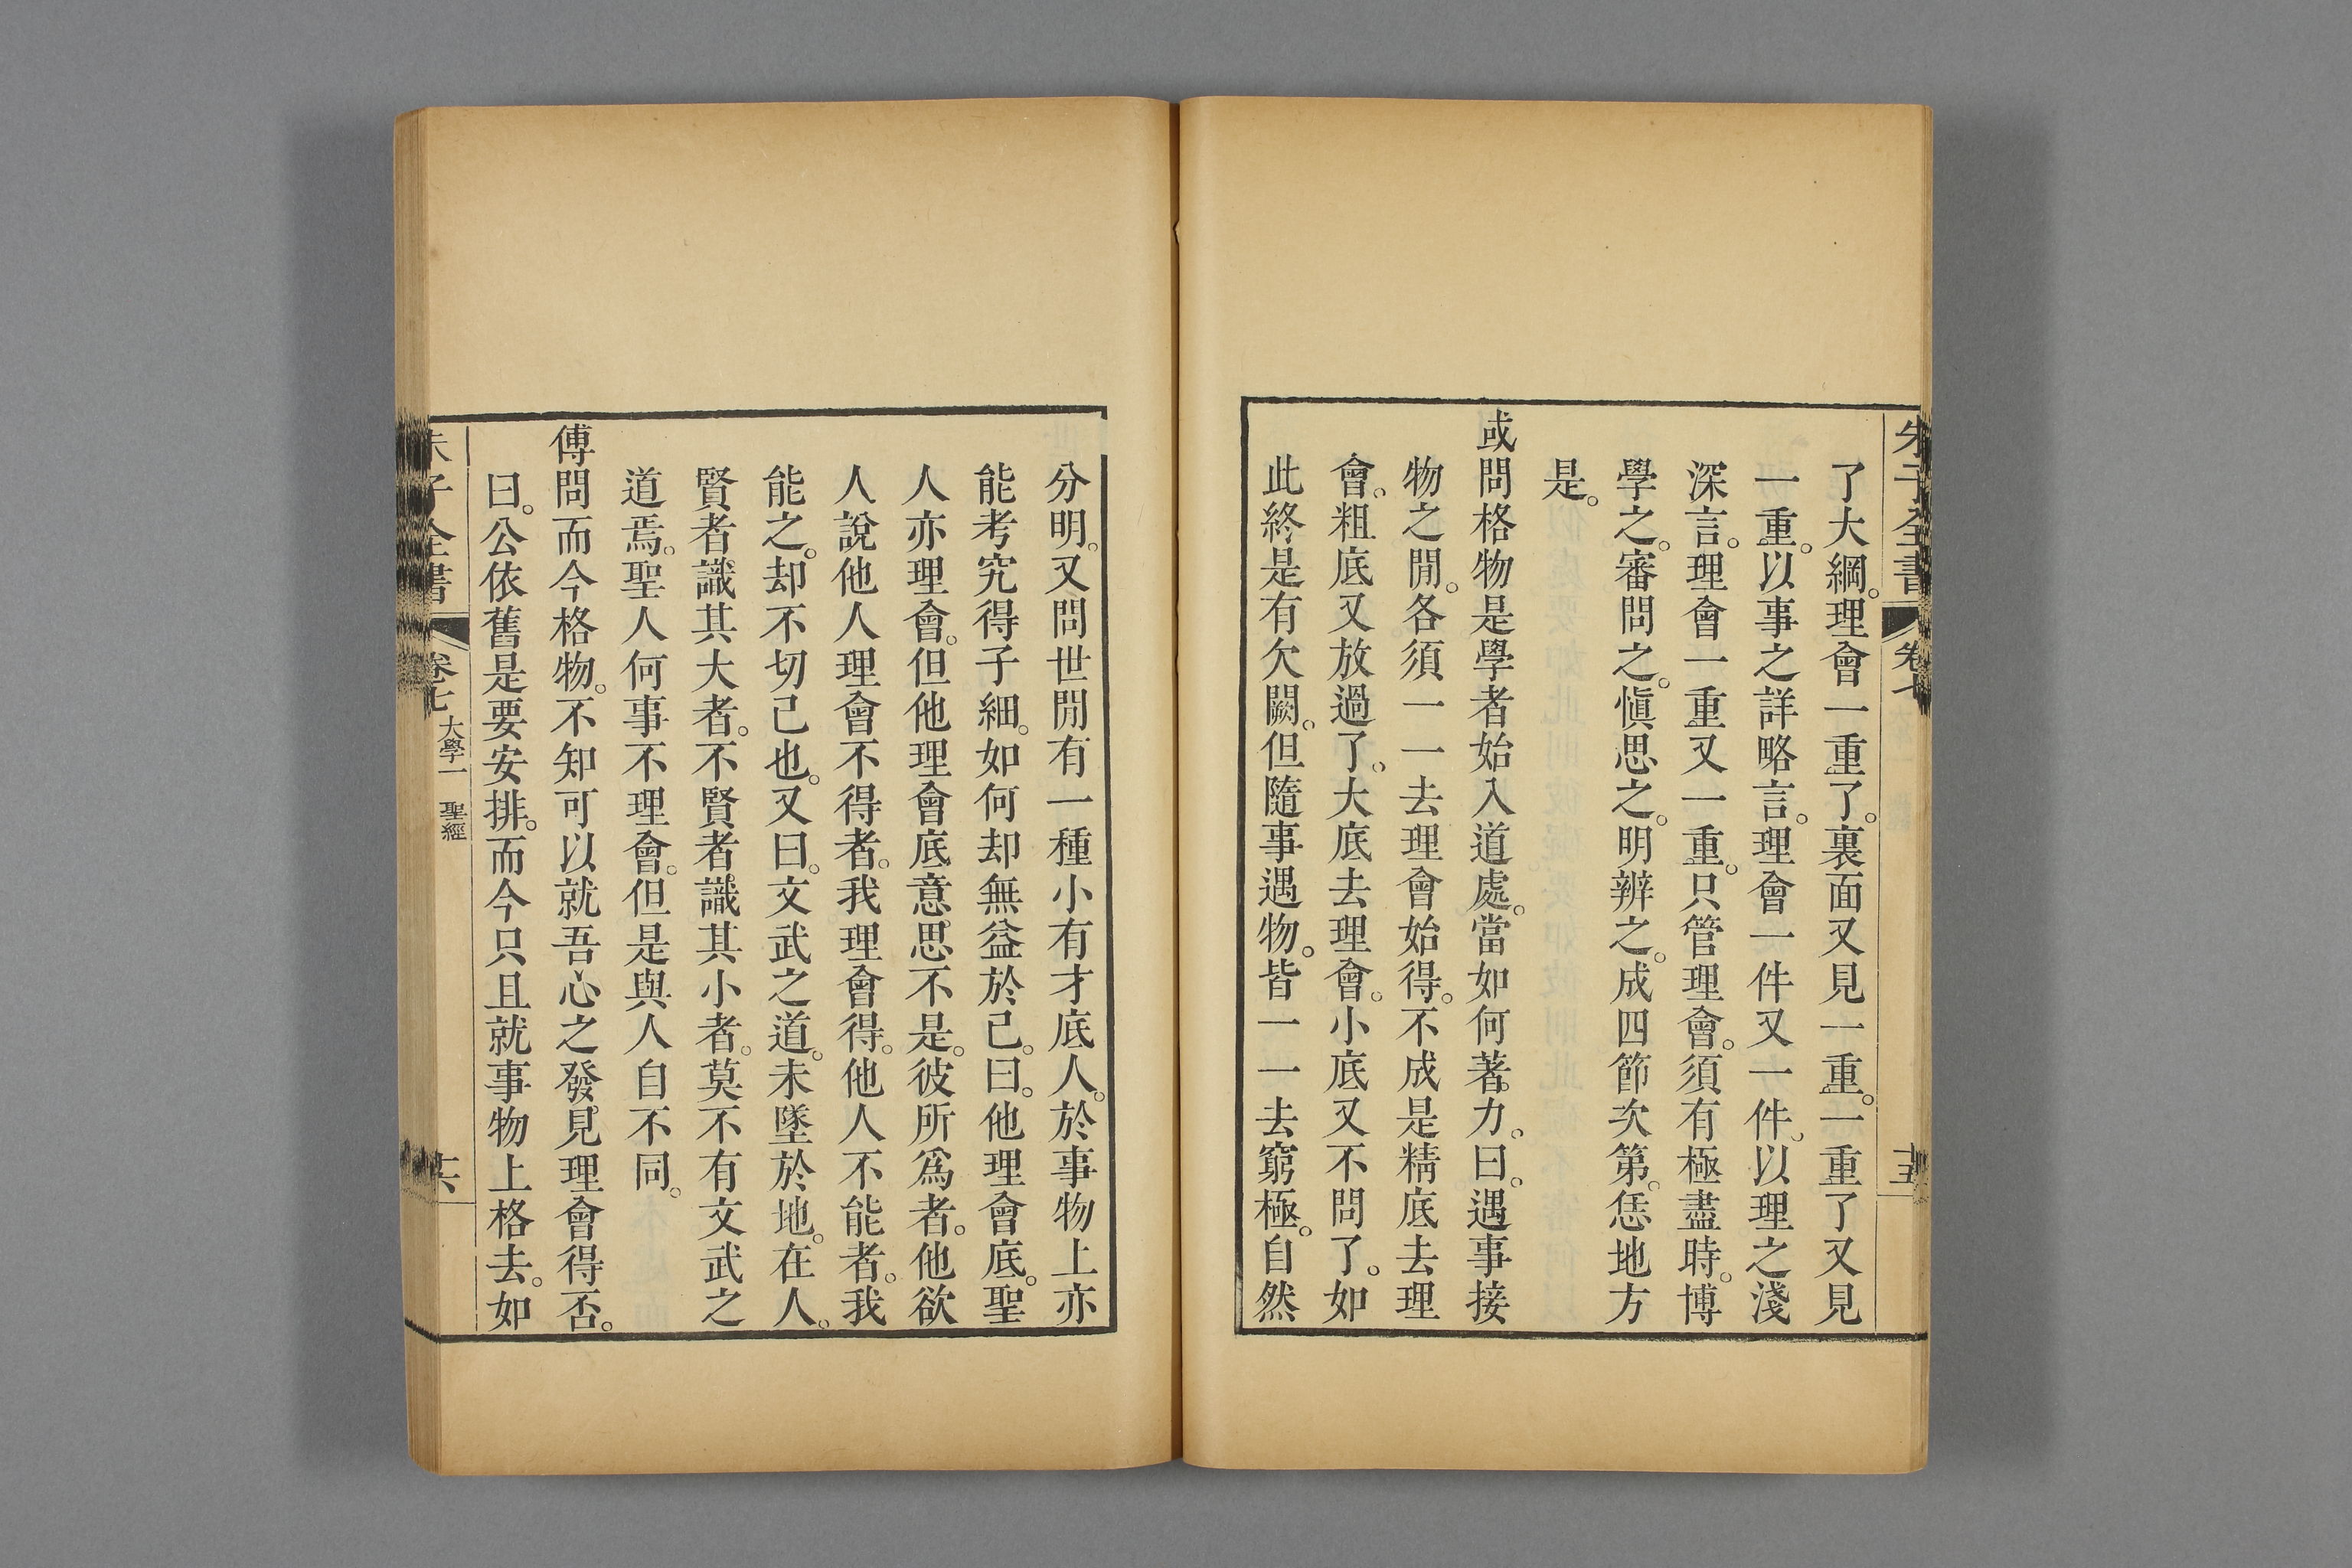 朱子全書 卷七 十五
了大綱。理會一重了。裏面又見一重。一重了又見
一重。以事之詳略言。理會一件又一件。以理之淺
深言。理會一重又一重。只管理會。須有極盡時。博
學之。審問之。愼思之。明辨之。成四節次第。恁地方
是。
或問格物是學者始入道處。當如何著力。曰。遇事接
物之閒。各須一一去理會始得。不成是精底去理
會。粗底又放過了。大底去理會。小底又不問了。如
此終是有欠闕。但隨事遇物。皆一一去窮極。自然
分明。又問世閒有一種小有才底人。於事物上亦
能考究得子細。如何却無益於己。曰。他理會底。聖
人亦理會。但他理會底意思不是。彼所爲者。他欲
人說他人理會不得者。我理會得。他人不能者。我
能之。却不切己也。又曰。文武之道。未墜於地。在人。
賢者識其大者。不賢者識其小者。莫不有文武之
道焉。聖人何事不理會。但是與人自不同。
傅問而今格物。不知可以就吾心之發見理會得否。
曰。公依舊是要安排。而今只且就事物上格去。如
朱子全書 卷七 大學一 聖經 十六